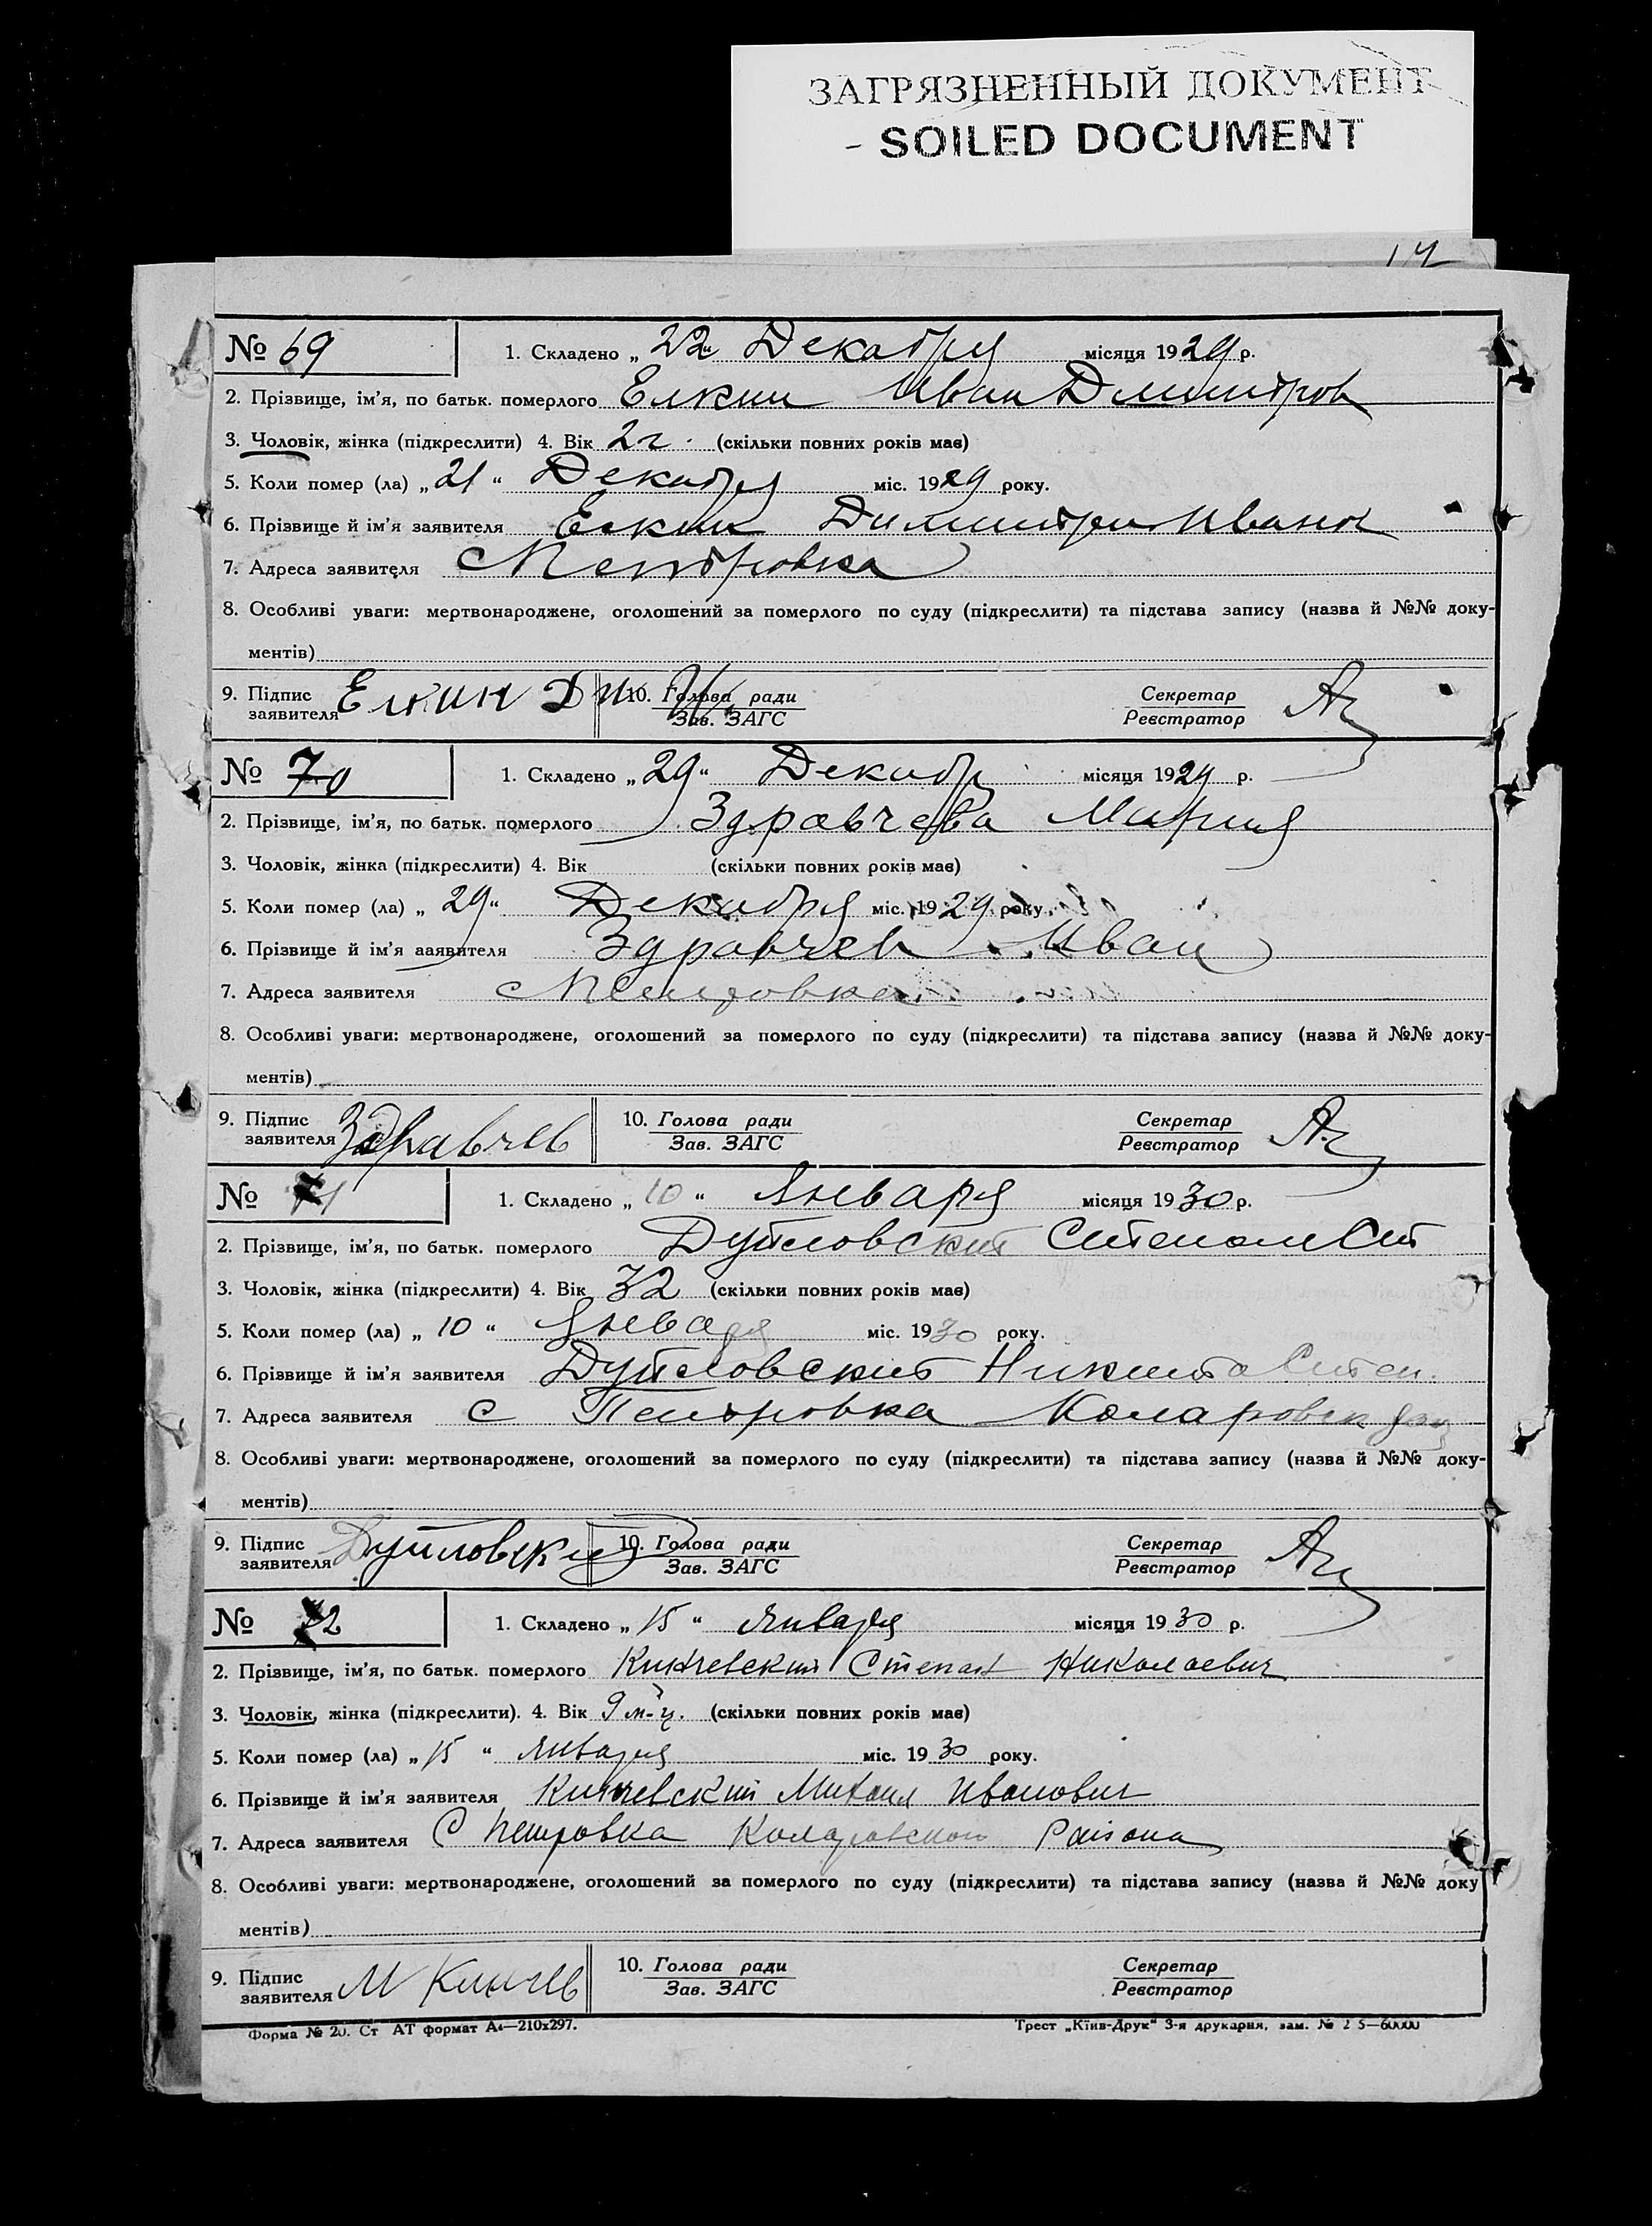 ЗАГРЯЗНЕННЫЙ ДОКУМЕНТ
- SOILED DOCUMENT
№ 69 1. Складено „ 22 “ Декабря місяця 1929 р.
2. Прізвище, ім'я, по батьк. померлого Елкин Иван Димитров
3. Чоловік, жінка (підкреслити) 4. Вік 2 г. (скільки повних років має)
5. Коли помер (ла) „ 21 “ Декабря міс. 1929 року.
6. Прізвище й ім'я заявителя Елкин Димитри Иванов
7. Адреса заявителя с Петровка
8. Особливі уваги: мертвонароджене, оголошений за померлого по суду (підкреслити) та підстава запису (назва й №№ доку-
ментів)
9. Підпис заявителя Елкин Д И 10. Голова ради Зав. ЗАГС Секретар Реєстратор
№ 70 1. Складено „ 29 “ Декабр місяця 1929 р.
2. Прізвище, ім'я, по батьк. померлого Здравчева Мария
3. Чоловік, жінка (підкреслити) 4. Вік (скільки повних років має)
5. Коли помер (ла) „ 29 “ Декабря міс. 1929 року.
6. Прізвище й ім'я ааявителя Здравчев Иван
7. Адреса заявителя с Петровка
8. Особливі уваги: мертвонароджене, оголошений за померлого по суду (підкреслити) та підстава запису (назва й №№ доку-
ментів)
9. Підпис заявителя Здравчев 10. Голова ради Зав. ЗАГС Секретар Реєстратор
№ 1. Складено „ 10 “ Января місяця 1930 р.
2. Прізвище, ім'я, по батьк. померлого Дутловский Степан Ст
3. Чоловік, жінка (підкреслити) 4. Вік 32 (скільки повних років має)
5. Коли помер (ла) „ 10 “ Января міс. 1930 року.
6. Прізвище й ім'я заявителя Дутловский Никита Степ.
7. Адреса заявителя с Петровка Коларовск
8. Особливі уваги: мертвонароджене, оголошений за померлого по суду (підкреслити) та підстава запису (назва й №№ доку-
ментів)
9. Підпис заявителя Дутловский 10. Голова ради Зав. ЗАГС Секретар Реєстратор
№ 1. Складено „ 15 “ Января місяця 1930 р.
2. Прізвище, ім'я, по батьк. померлого Кинчевский Степан Николаевич
3. Чоловік, жінка (підкреслити). 4. Вік 9 м-ц. (скільки повних років має)
5. Коли помер (ла) „ 15 “ Января міс. 1930 року.
6. Прізвище й ім'я заявителя Кинчевский Михаил Иванович
7. Адреса заявителя С Петровка Коларовского Района
8. Особливі уваги: мертвонароджене, оголошений за померлого по суду (підкреслити) та підстава запису (назва й №№ доку
ментів)
9. Підпис заявителя М Кинчев 10. Голова ради Зав. ЗАГС Секретар Реєстратор
Форма № 20. Ст АТ формат А4—210x297. Трест „Київ-Друк“ 3-я друкарня, зам. №